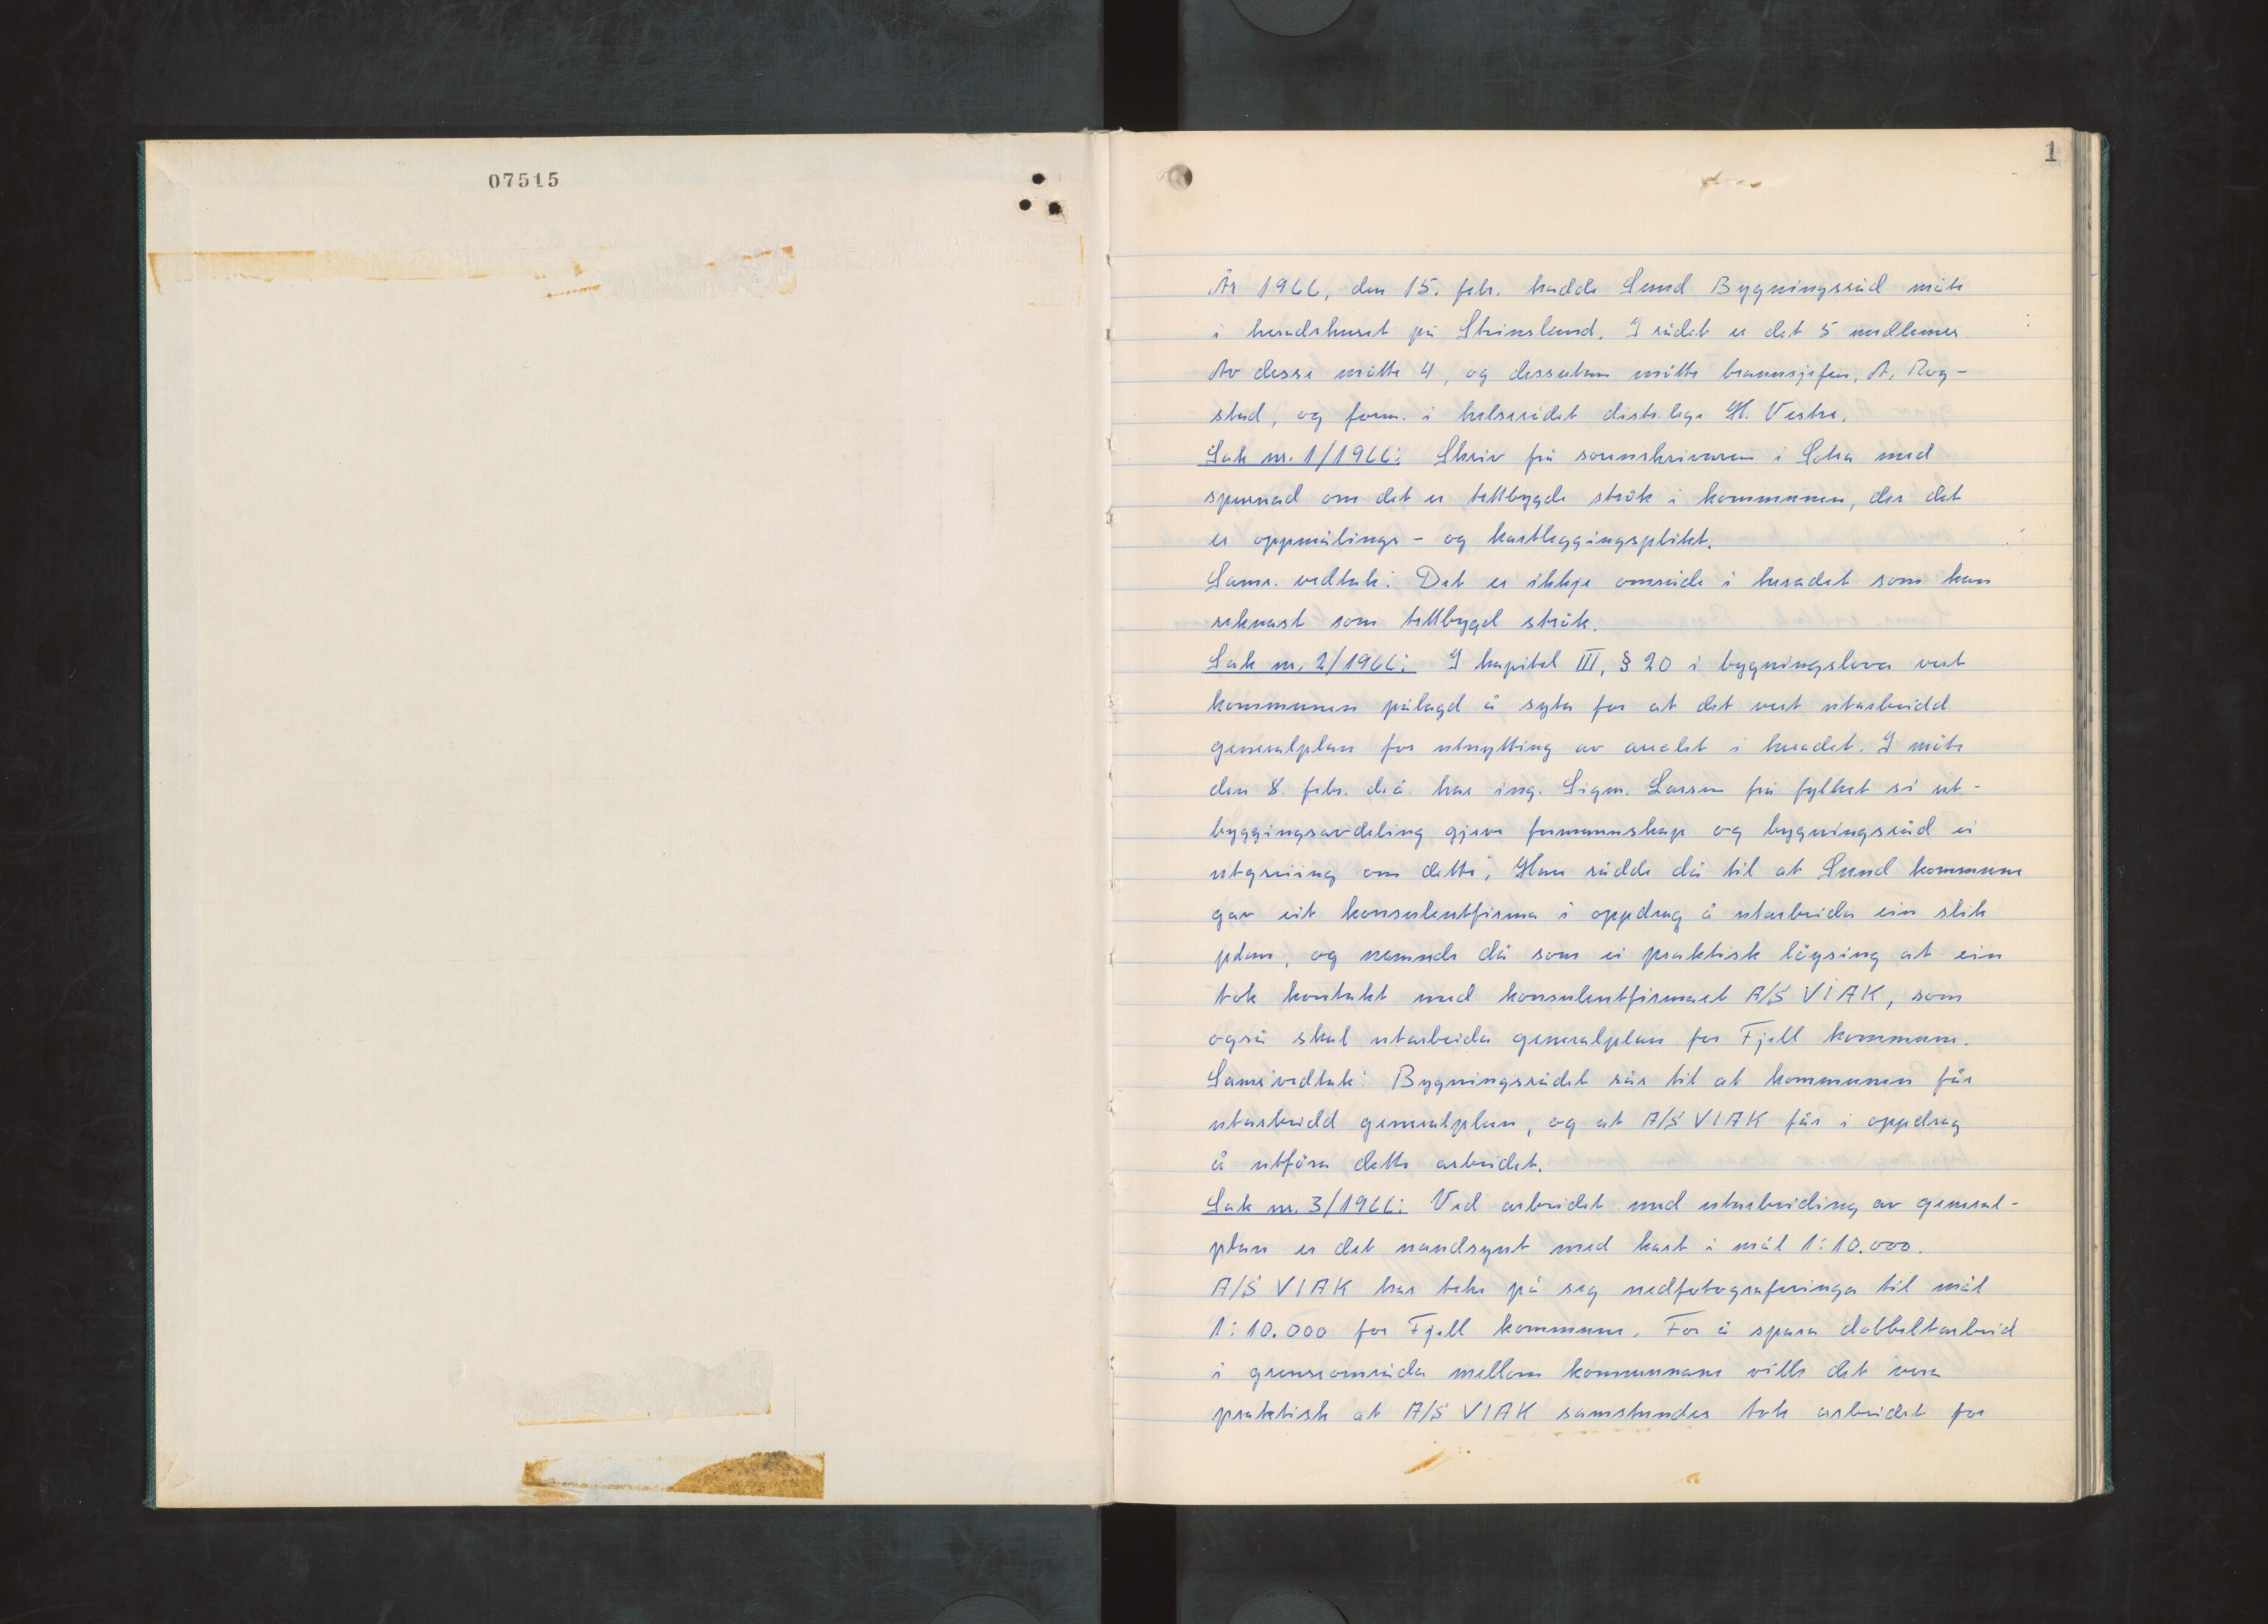 07515
1
År 1966, den 15. febr. hadde Sund Bygningsråd møte
i heradshuset på Steinsland. I rådet er det 5 medlemer.
Av desse møtte 4, og dessutan møtte brannsjefen, A. Rog-
stad, og form. i helserådet distr.lege H. Vestre.
Sak nr. 1/1966: Skriv frå sorenskrivaren i Sotra med
spurnad om det er tettbygde strøk i kommunen, der det
er oppmålings- og kartleggingsplikt.
Samr. vedtak: Det er ikkje område i heradet som kan
reknast som tettbygd strøk.
Sak nr. 2/1966: I kapitel III, § 20 i bygningslova vert
kommunen pålagd å syta for at det vert utarbeidd
generalplan for utnytting av arealet i heradet. I møte
den 8. febr. d.å. har ing. Sigm. Larsen frå fylket si ut-
byggingsavdeling gjeve formannskap og bygningsråd ei
utgreiing om dette. Han rådde då til at Sund kommune
gav eit konsulentfirma i oppdrag å utarbeida ein slik
plan, og nemnde då som ei praktisk løysing at ein
tok kontakt med konsulentfirmaet A/S VIAK, som
også skal utarbeida generalplan for Fjell kommune.
Samr. vedtak: Bygningsrådet rår til at kommunen får
utarbeidd generalplan, og at A/S VIAK får i oppdrag
å utføra dette arbeidet.
Sak nr. 3/1966: Ved arbeidet med utarbeiding av general-
plan er det naudsynt med kart i mål 1:10.000.
A/S VIAK har teke på seg nedfotograferinga til mål
1:10.000 for Fjell kommune. For å spara dobbeltarbeid
i grenseområda mellom kommunane ville det vera
praktisk at A/S VIAK samstundes tok arbeidet for